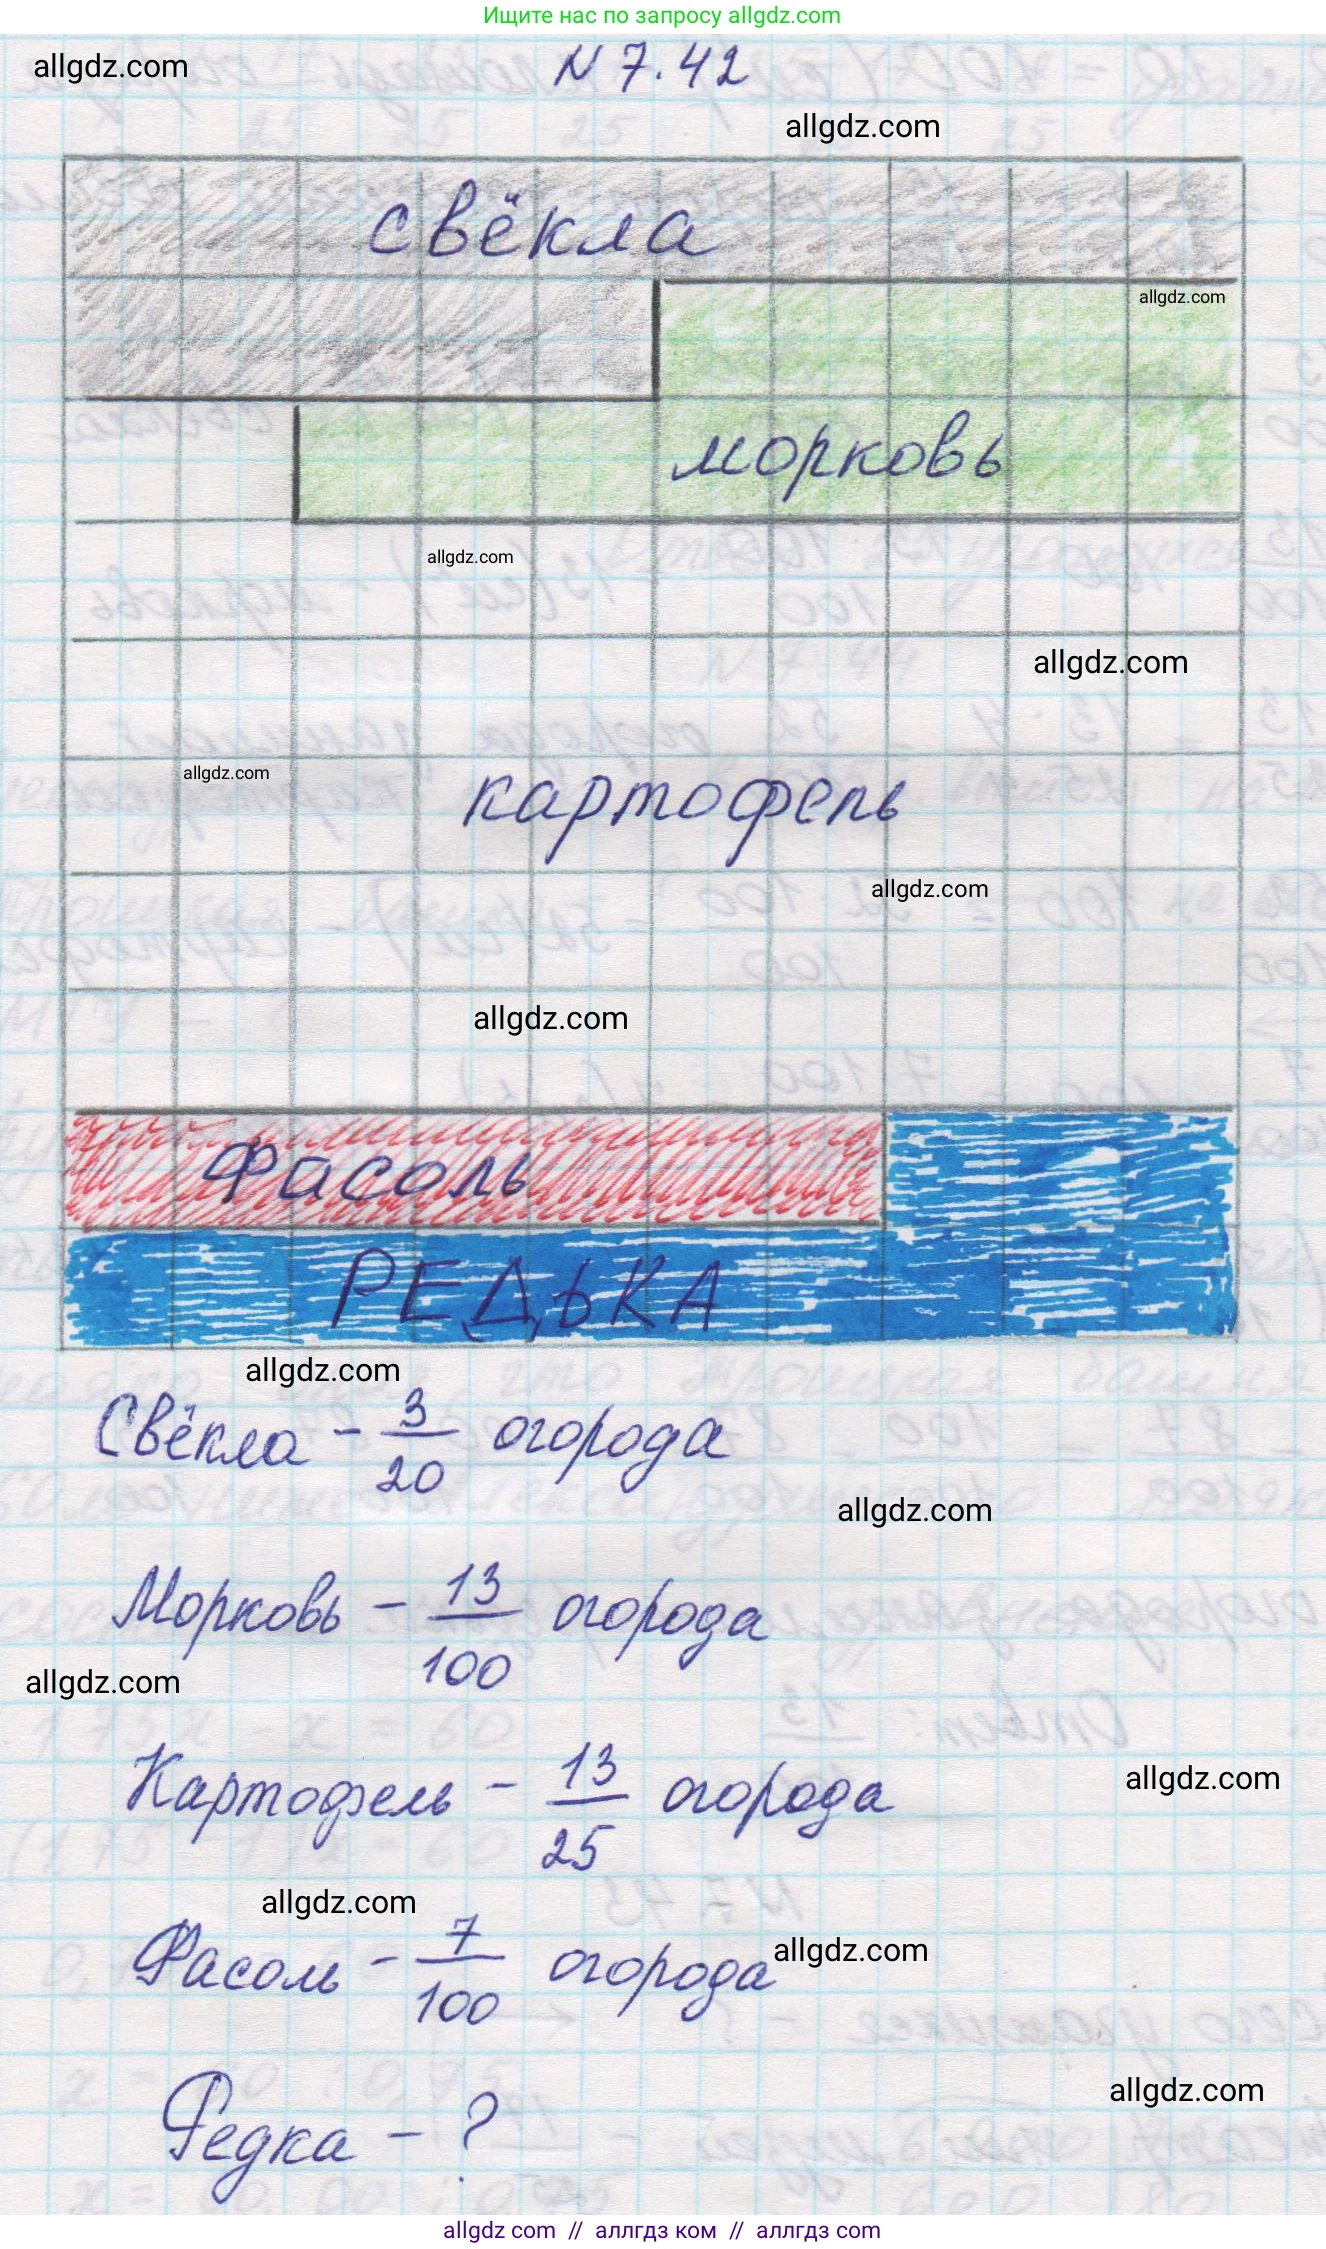 Ищите нас по запросу allgdz.com
allgdz.com
N 7.42
allgdz.com
свёкла
allgdz.com
морковь
allgdz.com
allgdz.com
allgdz.com
картофель
allgdz.com
allgdz.com
Фасоль
РЕДЬКА
allgdz.com
Свёкла - 3/20 огорода
allgdz.com
Морковь - 13/100 огорода
allgdz.com
Картофель - 13/25 огорода
allgdz.com
allgdz.com
Фасоль - 7/100 огорода
allgdz.com
allgdz.com
Редка - ?
allgdz com // аллгдз ком // аллгдз com